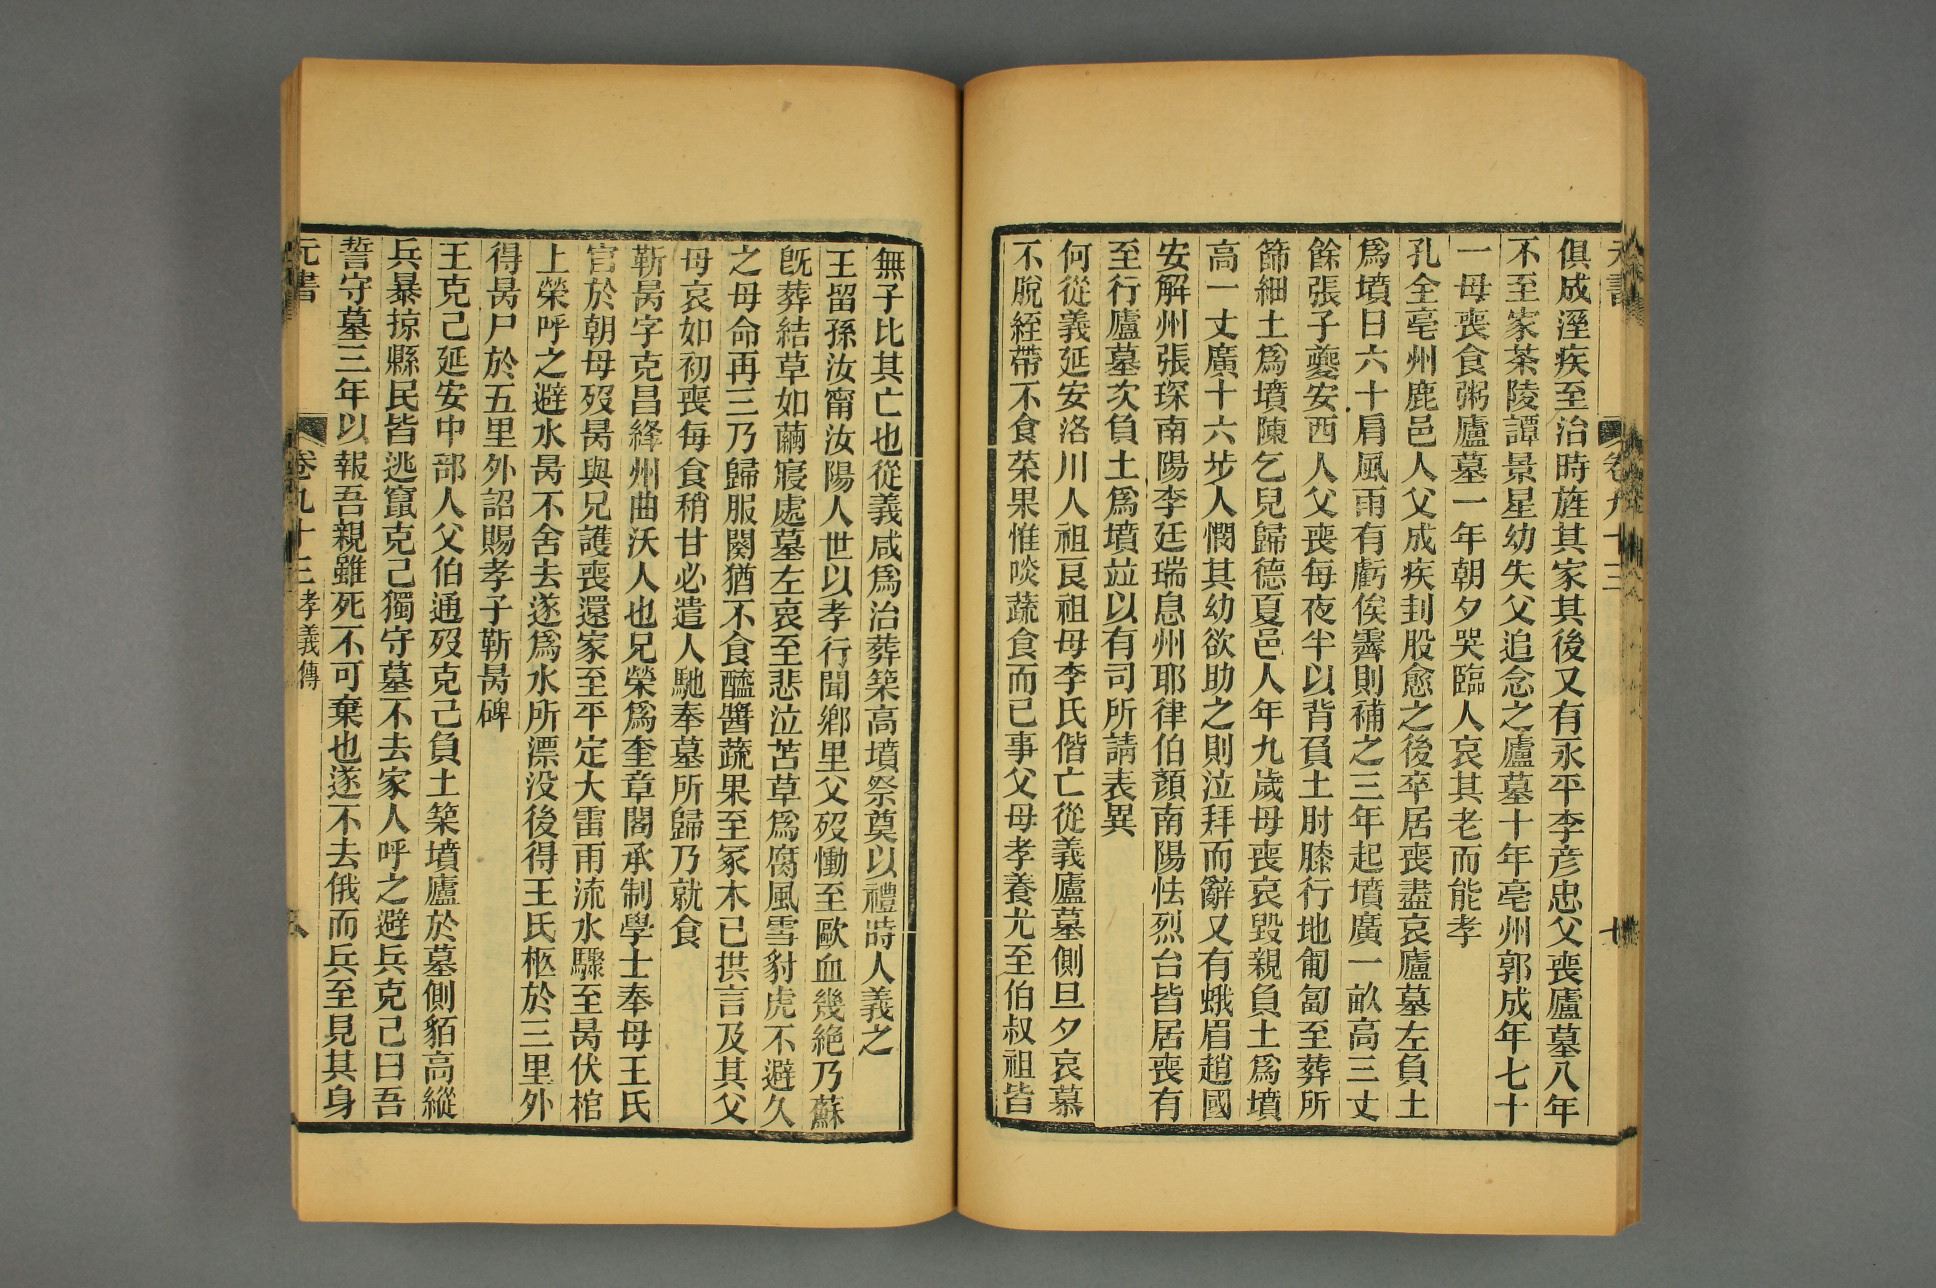 元書 卷九十三 七
俱成溼疾至治時旌其家其後又有永平李彥忠父喪廬墓八年
不至家茶陵譚景星幼失父追念之廬墓十年亳州郭成年七十
一母喪食粥廬墓一年朝夕哭臨人哀其老而能孝
孔全亳州鹿邑人父成疾刲股愈之後卒居喪盡哀廬墓左負土
爲墳日六十肩風雨有虧俟霽則補之三年起墳廣一畝高三丈
餘張子夔安西人父喪每夜半以背負土肘膝行地匍匐至葬所
篩細土爲墳陳乞兒歸德夏邑人年九歲母喪哀毀親負土爲墳
高一丈廣十六步人憫其幼欲助之則泣拜而辭又有蛾眉趙國
安解州張琛南陽李廷瑞息州耶律伯顏南陽怯烈台皆居喪有
至行廬墓次負土爲墳竝以有司所請表異
何從義延安洛川人祖良祖母李氏偕亡從義廬墓側旦夕哀慕
不脫絰帶不食菜果惟啖蔬食而已事父母孝養尤至伯叔祖皆
無子比其亡也從義咸爲治葬築高墳祭奠以禮時人義之
王留孫汝甯汝陽人世以孝行聞鄉里父歿慟至歐血幾絶乃蘇
旣葬結草如繭寢處墓左哀至悲泣苫草爲腐風雪豺虎不避久
之母命再三乃歸服闋猶不食醯醬蔬果至冢木已拱言及其父
母哀如初喪每食稍甘必遣人馳奉墓所歸乃就食
靳昺字克昌絳州曲沃人也兄榮爲奎章閣承制學士奉母王氏
官於朝母歿昺與兄護喪還家至平定大雷雨流水驟至昺伏棺
上榮呼之避水昺不舍去遂爲水所漂没後得王氏柩於三里外
得昺尸於五里外詔賜孝子靳昺碑
王克己延安中部人父伯通歿克己負土築墳廬於墓側貊高縱
兵暴掠縣民皆逃竄克己獨守墓不去家人呼之避兵克己曰吾
誓守墓三年以報吾親雖死不可棄也遂不去俄而兵至見其身
元書 卷九十三 孝義傳 八